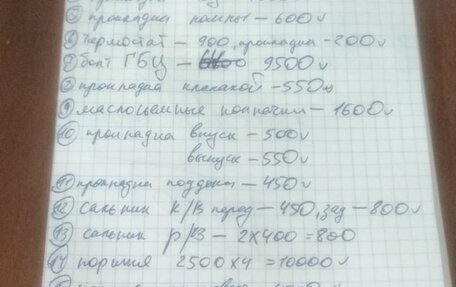 ⑤ прокладка помпы — 600 v
⑥ термостат — 900, прокладка — 200 v
⑦ болт ГБЦ — 9500 v
⑧ прокладка клапакой — 550
⑨ маслосьемные колпачки — 1600 v
⑩ прокладка впуск — 500 v
выпуск — 550 v
⑪ прокладка поддона — 450 v
⑫ сальник К/В перед — 450, зад — 800 v
⑬ сальник р/В — 2х400 = 800
⑭ поршня 2500 х 4 = 10000 v